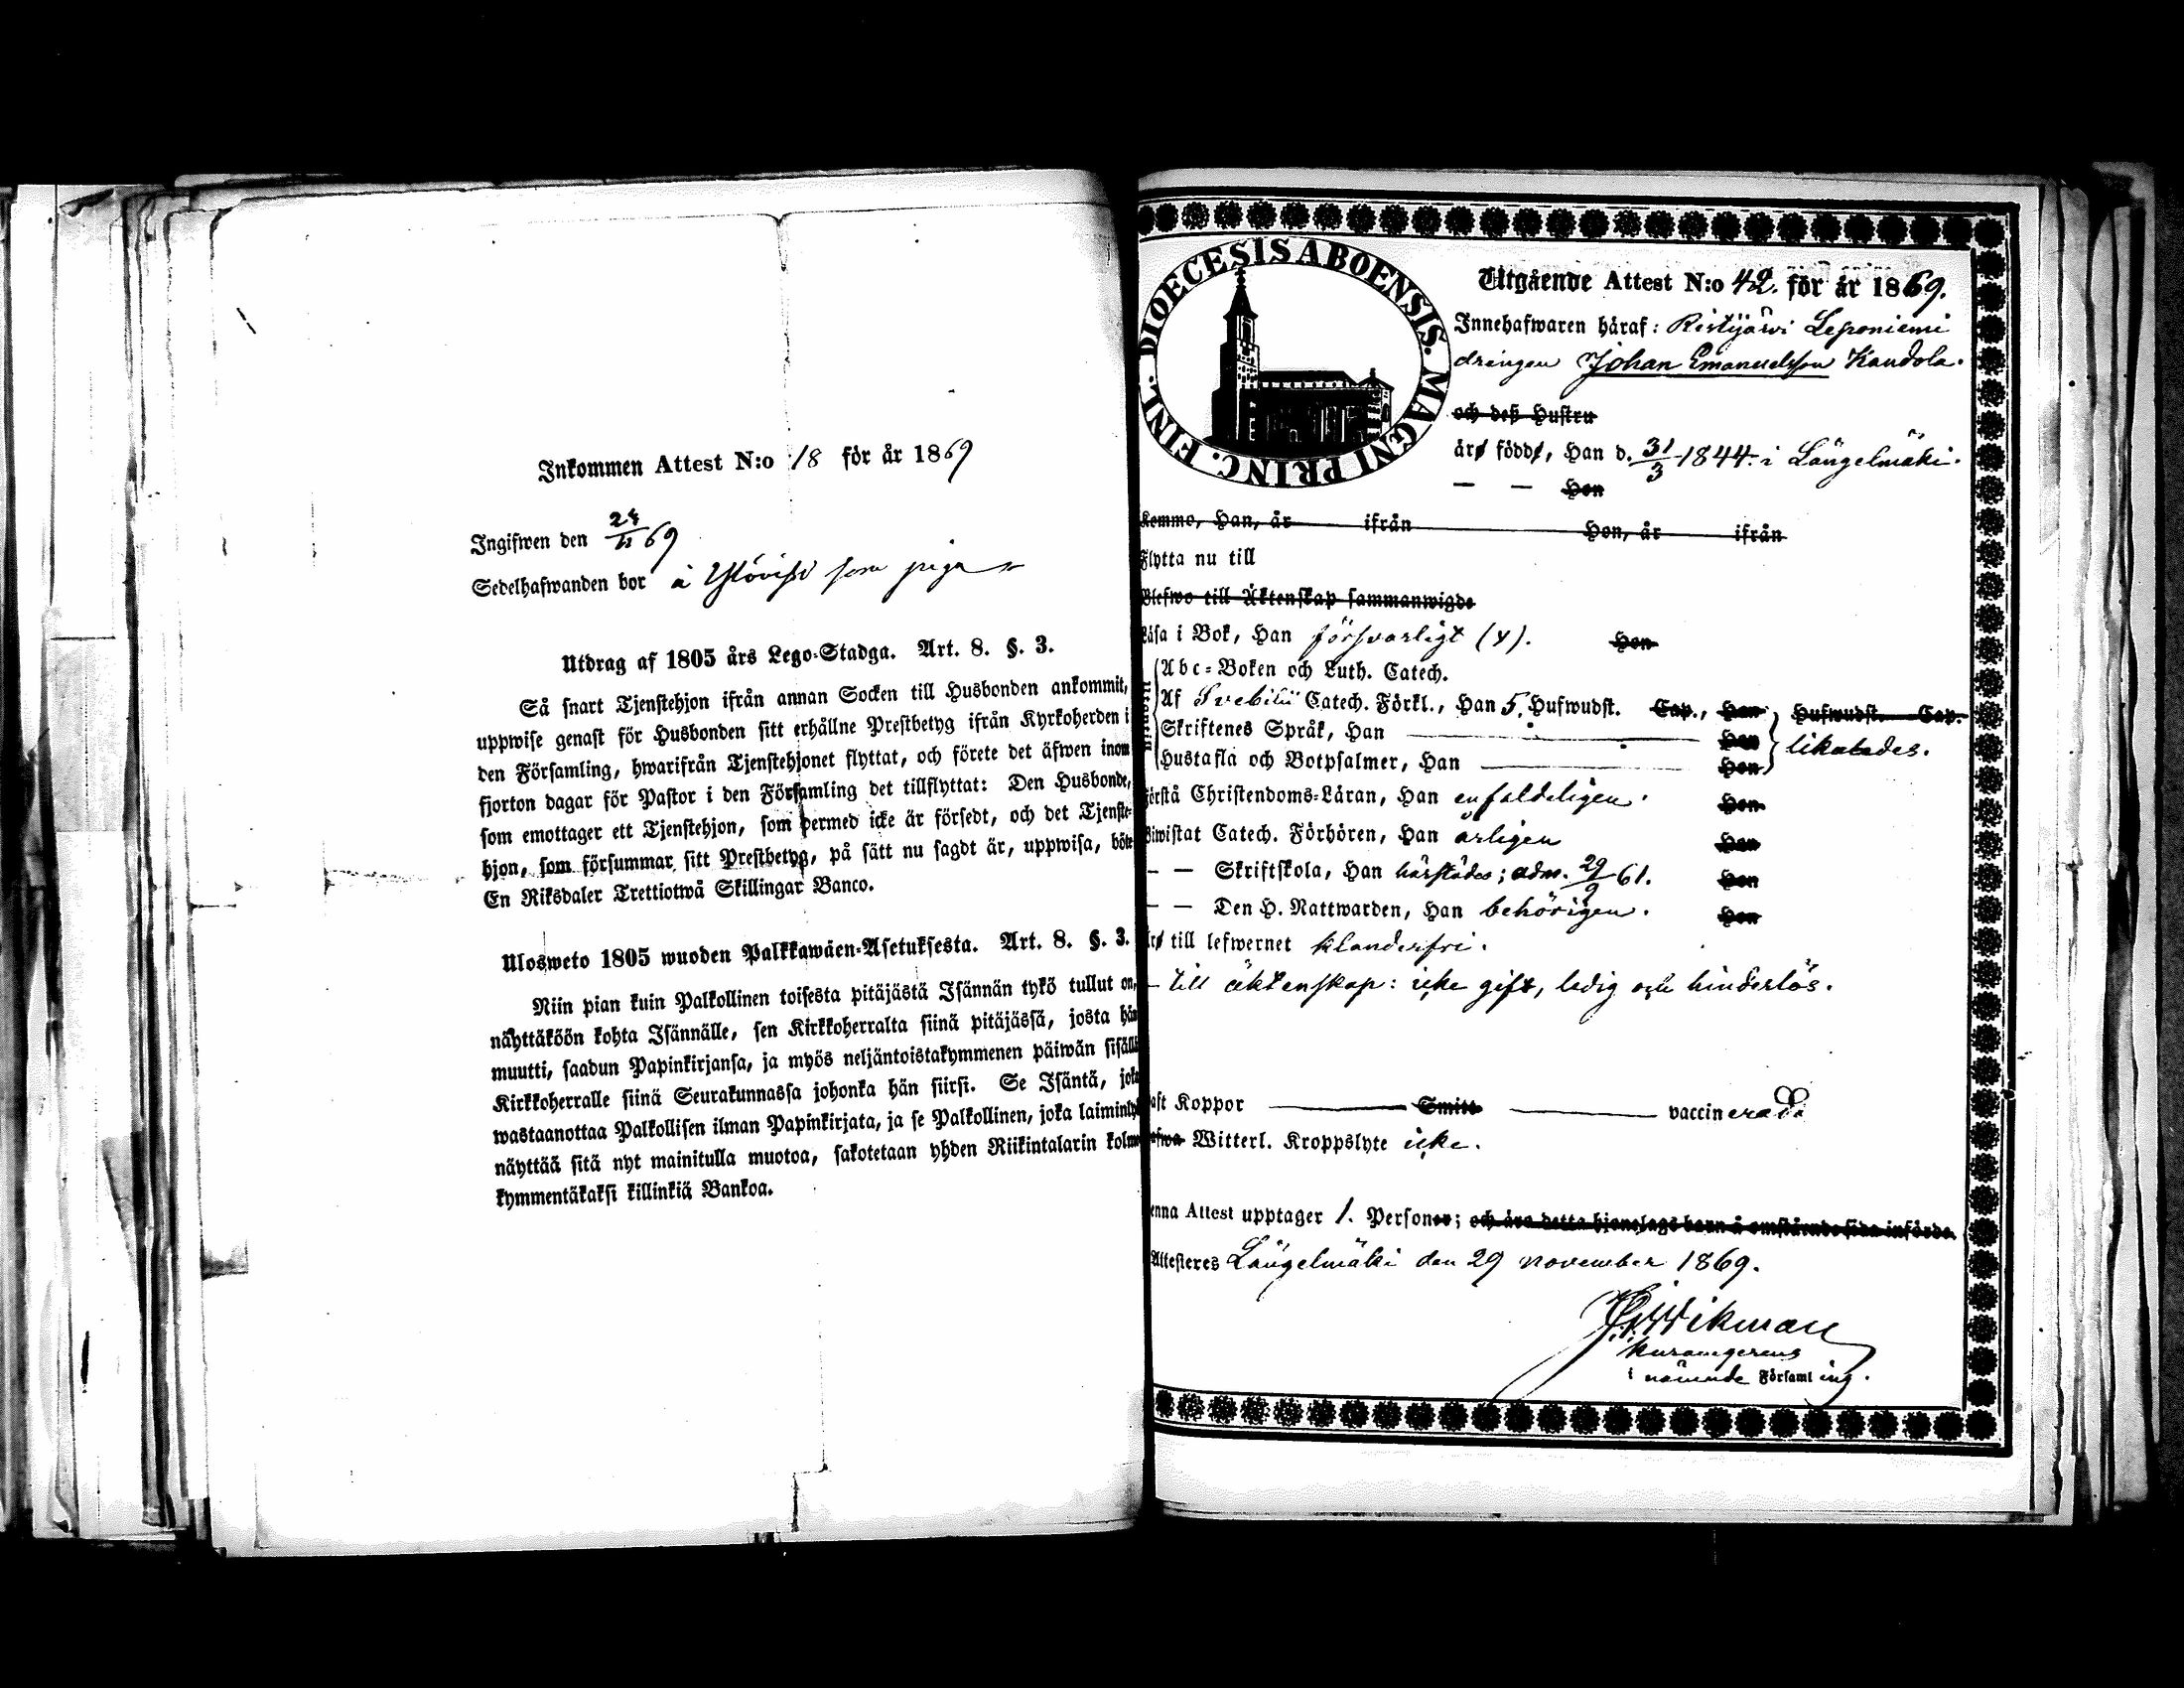 Inkommen Attest N:o 18 för år 1869
Ingifwen den 24/11 69
Sedelhafwanden bor å som piga
Utdrag af 1805 års Lego-Stadga. Art. 8. §. 3.
Så snart Tjenstehjon ifrån annan Socken till Husbonden ankommit,
uppwise genast för Husbonden sitt erhållne Prestbetyg ifrån Kyrkoherden i
den Församling, hwarifrån Tjenstehjonet flyttat, och förete det äfwen inom
fjorton dagar för Pastor i den Församling det tillflyttat: Den Husbonde,
som emottager ett Tjenstehjon, som dermed icke är försedt, och det Tjenste-
hjon, som försummar sitt Prestbetyg, på sätt nu sagdt är, uppwisa, böte
En Riksdaler Trettiotwå Skillingar Banco.
Ulosweto 1805 wuoden Palkkawäen-Asetuksesta. Art. 8. §. 3.
Niin pian kuin Palkollinen toisesta pitäjästä Isännän tykö tullut on,
näyttäköön kohta Isännälle, sen Kirkkoherralta siinä pitäjässä, josta hän
muutti, saadun Papinkirjansa, ja myös neljäntoistakymmenen päiwän sisällä
Kirkkoherralle siinä Seurakunnassa johonka hän siirsi. Se Isäntä, joka
wastaanottaa Palkollisen ilman Papinkirjata, ja se Palkollinen, joka laiminly
näyttää sitä nyt mainitulla muotoa, sakotetaan yhden Riikintalarin kolme
kymmentäkaksi killinkiä Bankoa.
DIOECESIS ABOENSIS. MAGNI PRINC. FINL.
Utgående Attest N:o 42. för år 1869.
Innehafwaren häraf: Ristijärwi Leponiemi
drängen Johan Emanuelsson Kaudola.
och deß Hustru
äro födde, Han d. 31/3 1844. i Längelmäki.
— — Hon
Kommo, Han, år ifrån Hon, år ifrån
Flytta nu till
Blefwo till Äktenskap sammanwigde
Läsa i Bok, Han försvarligt (y). Hon
Abc-Boken och Luth. Catech.
Af Svebilii Catech. Förkl., Han 5. Hufwudst. Cap., Hon Hufwudst. Cap.
Skriftenes Språk, Han — Hon likaledes.
Hustafla och Botpsalmer, Han — Hon
Förstå Christendoms-Läran, Han enfaldeligen. Hon
Biwistat Catech. Förhören, Han årligen Hon
— — Skriftskola, Han härstädes; adm. 29/9 61. Hon
— — Den H. Nattwarden, Han behörigen. Hon
Äro till lefwernet klanderfri.
— till äktenskap: icke gift, ledig och hinderlös.
aft Koppor — Smitt — vaccinerad.
efwa Witterl. Kroppslyte icke.
enna Attest upptager 1. Personer; och äro detta hjonelags barn å omstående sida införde.
Attesteres Längelmäki den 29 november 1869.
Wikman
i nämnde Församling.